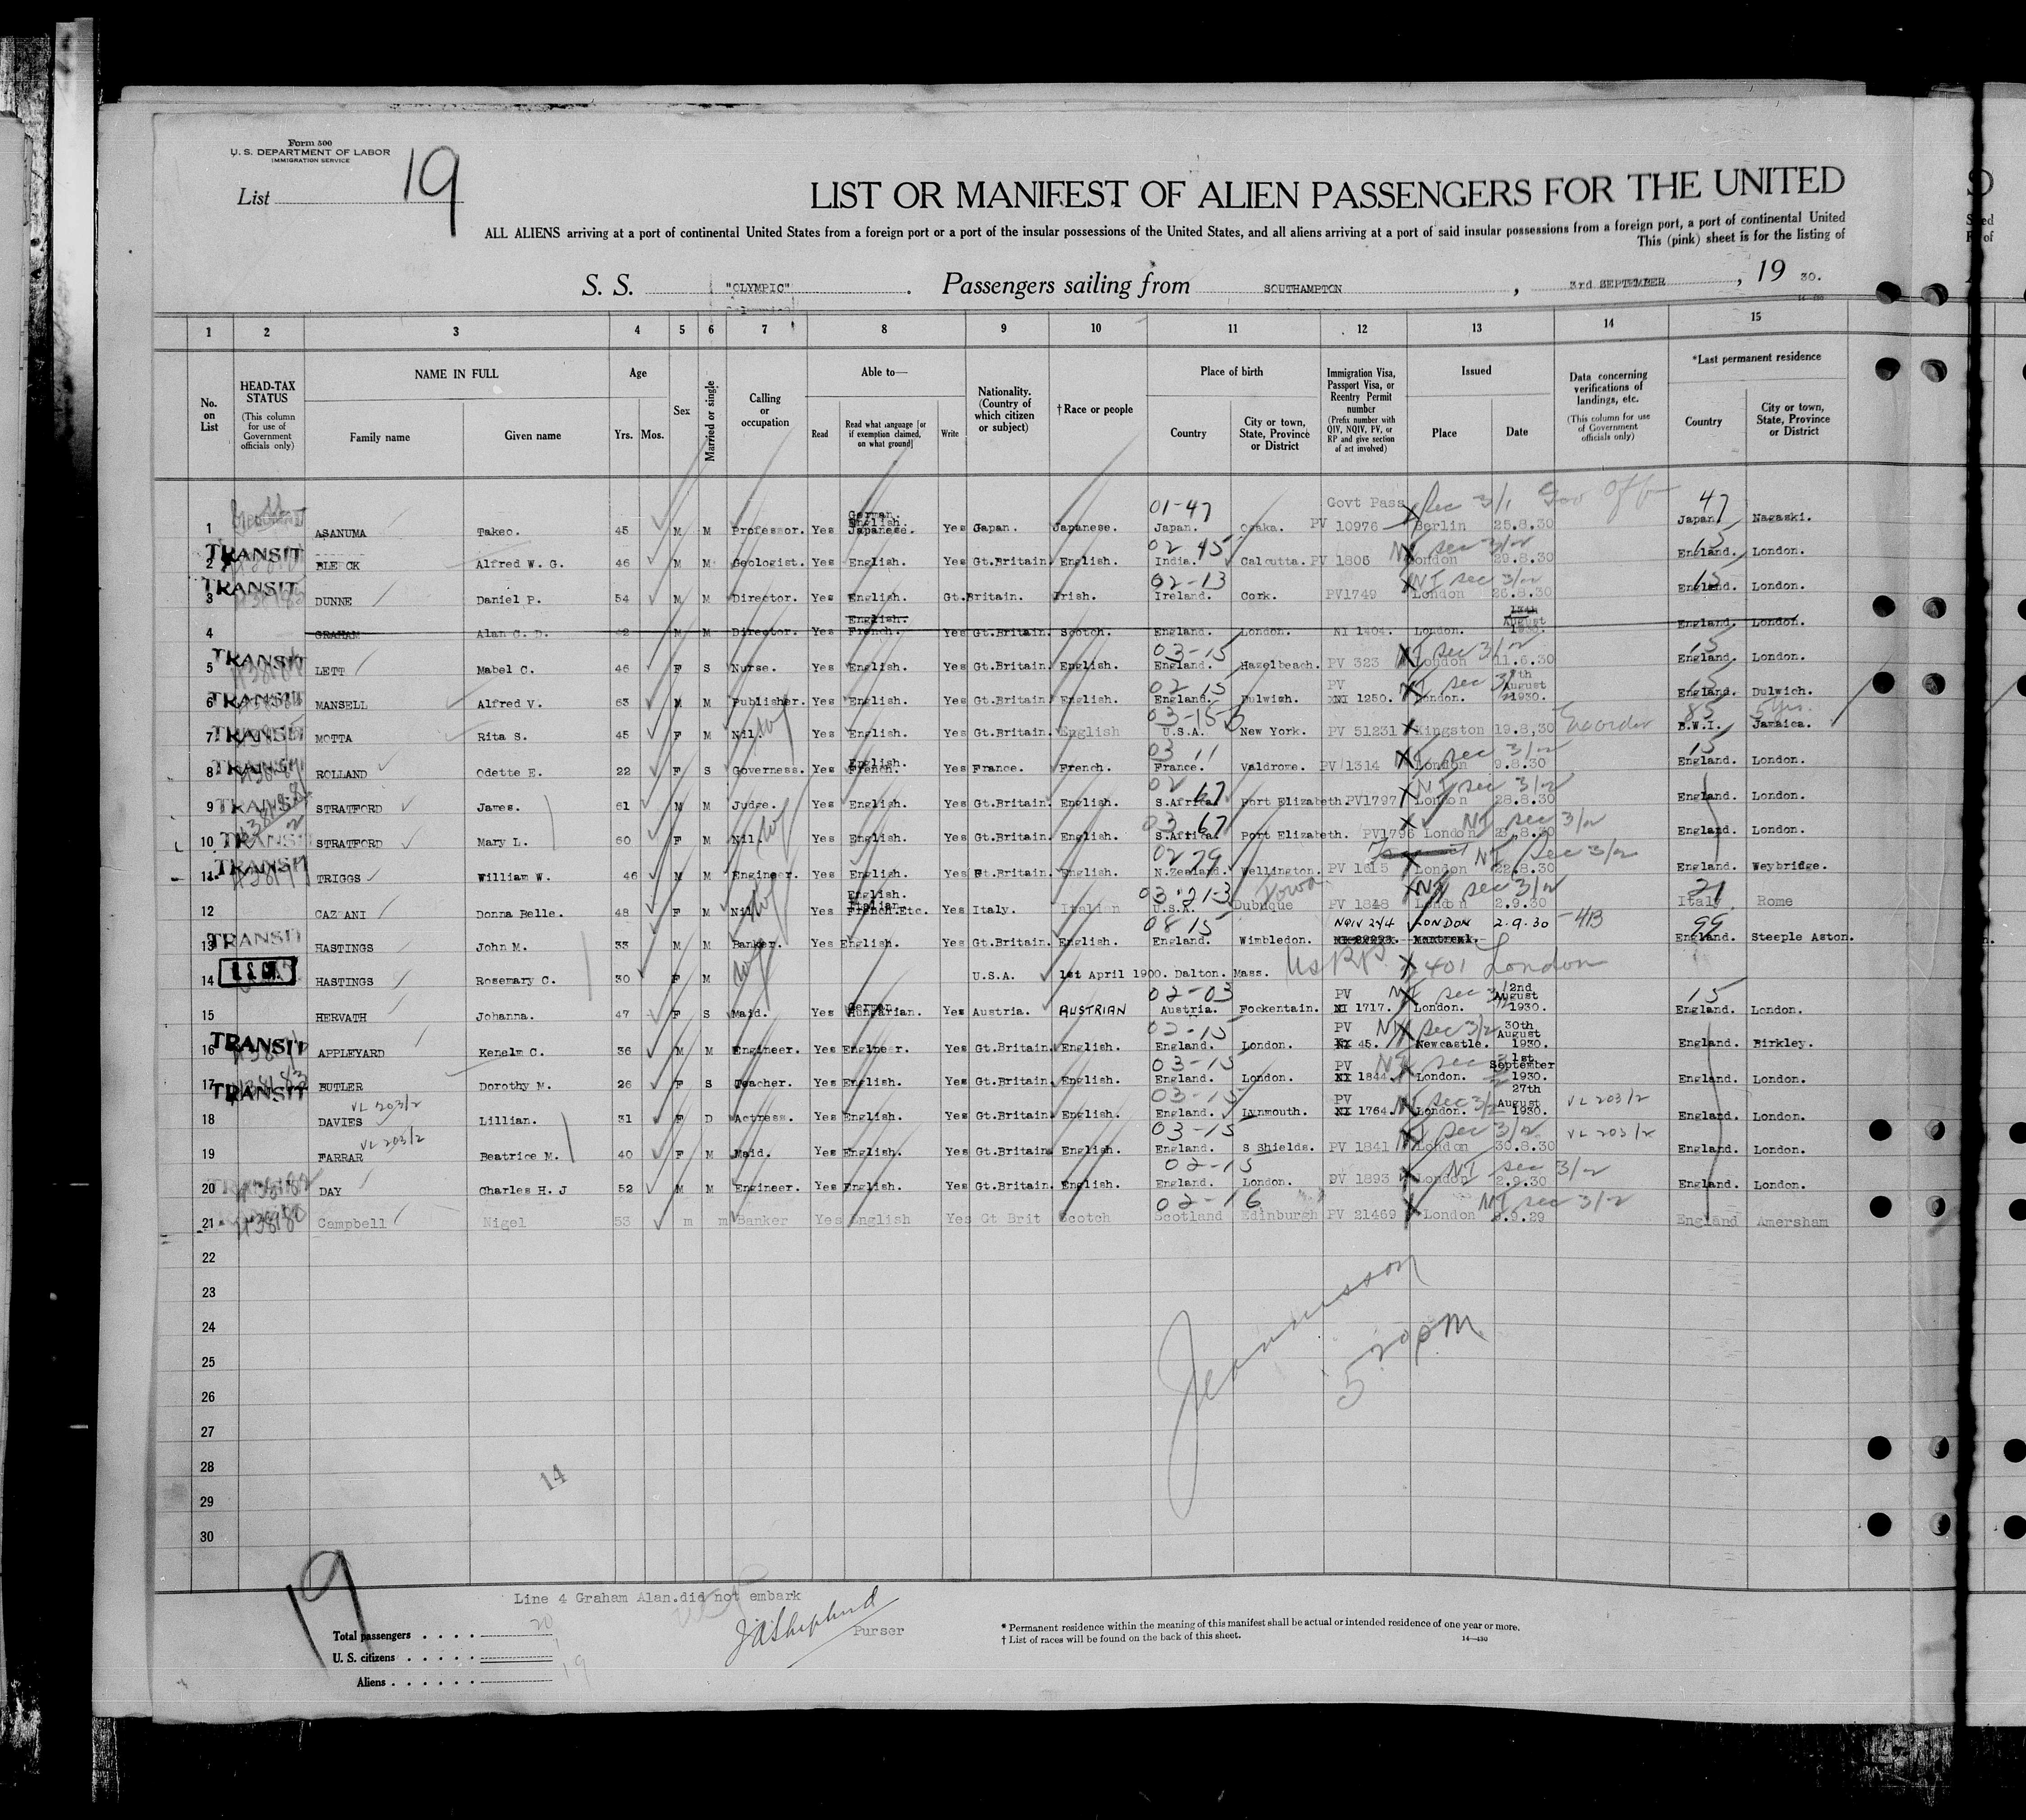 Form 500
U. S. DEPARTMENT OF LABOR
IMMIGRATION SERVICE
List 19
LIST OR MANIFEST OF ALIEN PASSENGERS FOR THE UNITED
ALL ALIENS arriving at a port of continental United States from a foreign port or a port of the insular possessions of the United States, and all aliens arriving at a port of said insular possessions from a foreign port, a port of continental United
This (pink) sheet is for the listing of
S. S. "OLYMPIC" . Passengers sailing from SOUTHAMPTON , 3rd SEPTEMBER , 19 30.
1 2 3 4 5 6 7 8 9 10 11 12 13 14 15
No. on List
HEAD-TAX STATUS (This column for use of Government officials only)
NAME IN FULL
Family name Given name
Age
Yrs. Mos.
Sex
Married or single
Calling or occupation
Able to—
Read Read what language [or if exemption claimed, on what ground] Write
Nationality. (Country of which citizen or subject)
† Race or people
Place of birth
Country City or town, State, Province or District
Immigration Visa, Passport Visa, or Reentry Permit number (Prefix number with QIV, NQIV, PV, or RP and give section of act involved)
Issued
Place Date
Data concerning verifications of landings, etc. (This column for use of Government officials only)
*Last permanent residence
Country City or town, State, Province or District
01-47 Govt Pass Sec 3/1 Gov Off 47
1 ASANUMA Takeo. 45 M M Professor. Yes German. English. Japanese. Yes Japan. Japanese. Japan. Osaka. PV 10976 Berlin 25.8.30 Japan. Nagaski.
02 45 NI sec 3/2 15
TRANSIT 2 BLECK Alfred W. G. 46 M M Geologist. Yes English. Yes Gt.Britain. English. India. Calcutta. PV 1806 London 29.8.30 England. London.
02-13 NI sec 3/2 15
TRANSIT 3 DUNNE Daniel P. 54 M M Director. Yes English. Gt.Britain. Irish. Ireland. Cork. PV1749 London 26.8.30 England. London.
4 GRAHAM Alan C. D. 42 M M Director. Yes English. French. Yes Gt.Britain. Scotch. England. London. NI 1404. London. 13th August 1930. England. London.
03-15 NI sec 3/2 15
TRANSIT 5 LETT Mabel C. 46 F S Nurse. Yes English. Yes Gt.Britain. English. England. Hazelbeach. PV 323 London 11.6.30 England. London.
02 15 NI sec 3/2 15
TRANSIT 6 MANSELL Alfred V. 63 M M Publisher. Yes English. Yes Gt.Britain. English. England. Dulwish. PV NI 1250. London. 7th August 1930. England. Dulwich.
03-15-3 85 5 yrs.
TRANSIT 7 MOTTA Rita S. 45 F M Nil. Yes English. Yes Gt.Britain. English U.S.A. New York. PV 51231 Kingston 19.8,30 B.W.I. Jamaica.
03 11 NI sec 3/2 15
TRANSIT 8 ROLLAND Odette E. 22 F S Governess. Yes English. French. Yes France. French. France. Valdrome. PV 1314 London 9.8.30 England. London.
02 67 NI sec 3/2
TRANSIT 9 STRATFORD James. 61 M M Judge. Yes English. Yes Gt.Britain. English. S.Africa. Port Elizabeth. PV1797 London 28.8.30 England. London.
03 67 NI sec 3/2
TRANSIT 10 STRATFORD Mary L. 60 F M Nil. Yes English. Yes Gt.Britain. English. S.Africa. Port Elizabeth. PV1796 London 28.8.30 England. London.
02 79 NI Sec 3/2
TRANSIT 11 TRIGGS William W. 46 M M Engineer. Yes English. Yes Gt.Britain. English. N.Zealand. Wellington. PV 1615 London 22.8.30 England. Weybridge.
03-21-3 Iowa NI sec 3/2 21
12 CAZZANI Donna Belle. 48 F M Nil. Yes English. Italian. French.Etc. Yes Italy. Italian U.S.A. Dubuque PV 1848 London 2.9.30 Italy Rome
08 15 NQIV 244 LONDON 2.9.30 -4B 99
TRANSIT 13 HASTINGS John M. 33 M M Banker. Yes English. Yes Gt.Britain. English. England. Wimbledon. Montreal. England. Steeple Aston.
14 HASTINGS Rosemary C. 30 F M U.S.A. 1st April 1900. Dalton. Mass. US PP 401 London
02-03 NI sec 3/2 15
15 HERVATH Johanna. 47 F S Maid. Yes German. Hungarian. Yes Austria. AUSTRIAN Austria. Fockentain. PV NI 1717. London. 22nd August 1930. England. London.
02-15 NI sec 3/2
TRANSIT 16 APPLEYARD Kenelm C. 36 M M Engineer. Yes Engineer. Yes Gt.Britain. English. England. London. PV NI 45. Newcastle. 30th August 1930. England. Birkley.
03-15 NI sec 3/2
TRANSIT 17 BUTLER Dorothy M. 26 F S Teacher. Yes English. Yes Gt.Britain. English. England. London. PV NI 1844. London. 1st September 1930. England. London.
VL 203/2 03-15 NI sec 3/2 VL 203/2
18 DAVIES Lillian. 31 F D Actress. Yes English. Yes Gt.Britain. English. England. Lynmouth. PV NI 1764. London. 27th August 1930. England. London.
VL 203/2 03-15 NI sec 3/2 VL 203/2
19 FARRAR Beatrice M. 40 F M Maid. Yes English. Yes Gt.Britain. English. England. S Shields. PV 1841 London 30.8.30 England. London.
02-15 NI sec 3/2
TRANSIT 20 DAY Charles H. J 52 M M Engineer. Yes English. Yes Gt.Britain. English. England. London. PV 1893 London 2.9.30 England. London.
02-16 NI sec 3/2
21 Campbell Nigel 53 m m Banker Yes English Yes Gt Brit Scotch Scotland Edinburgh PV 21469 London 9.9.29 England Amersham
22
23
24
25
26
27
28
29
30
5 20 PM
14
19
Line 4 Graham Alan.did not embark
Purser
Total passengers 20
U. S. citizens 1
Aliens 19
* Permanent residence within the meaning of this manifest shall be actual or intended residence of one year or more.
† List of races will be found on the back of this sheet.
14—430